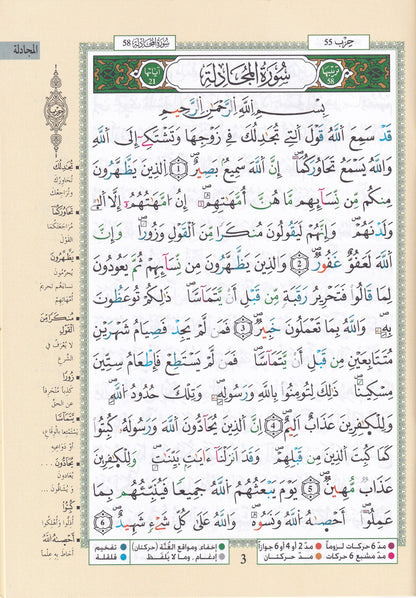 حِزْب 55
سُورَةُ المُجَادلَة 58
المجادلة
ترتيبها 58
سُورَةُ الْمُجَادلَة
آياتها 21
بِسْمِ اللَّهِ الرَّحْمَٰنِ الرَّحِيمِ
قَدْ سَمِعَ اللَّهُ قَوْلَ الَّتِي تُجَٰدِلُكَ فِي زَوْجِهَا وَتَشْتَكِي إِلَى اللَّهِ
وَاللَّهُ يَسْمَعُ تَحَاوُرَكُمَا إِنَّ اللَّهَ سَمِيعٌ بَصِيرٌ 1 الَّذِينَ يَظَّهَّرُونَ
مِنكُم مِّن نِّسَآئِهِم مَّا هُنَّ أُمَّهَٰتِهِمْ إِنْ أُمَّهَٰتُهُمْ إِلَّا الَّٰٓئِ
وَلَدْنَهُمْ وَإِنَّهُمْ لَيَقُولُونَ مُنكَرًا مِّنَ الْقَوْلِ وَزُورًا وَإِنَّ
اللَّهَ لَعَفُوٌّ غَفُورٌ 2 وَالَّذِينَ يَظَّهَّرُونَ مِن نِّسَآئِهِمْ ثُمَّ يَعُودُونَ
لِمَا قَالُوا فَتَحْرِيرُ رَقَبَةٍ مِّن قَبْلِ أَن يَتَمَآسَّا ذَٰلِكُمْ تُوعَظُونَ
بِهِ وَاللَّهُ بِمَا تَعْمَلُونَ خَبِيرٌ 3 فَمَن لَّمْ يَجِدْ فَصِيَامُ شَهْرَيْنِ
مُتَتَابِعَيْنِ مِن قَبْلِ أَن يَتَمَآسَّا فَمَن لَّمْ يَسْتَطِعْ فَإِطْعَامُ سِتِّينَ
مِسْكِينًا ذَٰلِكَ لِتُؤْمِنُوا بِاللَّهِ وَرَسُولِهِ وَتِلْكَ حُدُودُ اللَّهِ
وَلِلْكَٰفِرِينَ عَذَابٌ أَلِيمٌ 4 إِنَّ الَّذِينَ يُحَآدُّونَ اللَّهَ وَرَسُولَهُ كُبِتُوا
كَمَا كُبِتَ الَّذِينَ مِن قَبْلِهِمْ وَقَدْ أَنزَلْنَا ءَايَٰتٍ بَيِّنَٰتٍ وَلِلْكَٰفِرِينَ
عَذَابٌ مُّهِينٌ 5 يَوْمَ يَبْعَثُهُمُ اللَّهُ جَمِيعًا فَيُنَبِّئُهُم بِمَا
عَمِلُوا أَحْصَىٰهُ اللَّهُ وَنَسُوهُ وَاللَّهُ عَلَىٰ كُلِّ شَيْءٍ شَهِيدٌ 6
تُجَٰدِلُكَ
تُحاوِرُكَ
وتُراجِعُكَ
تَحَاوُرَكُمَا
مُراجَعَتَكُما
القَوْلَ
يَظَّهَّرُونَ
يُحَرِّمُونَ
نِساءَهم تَحريمَ
أمّهاتِهم
مُنكَرًا مِّنَ
الْقَوْلِ
لا يُعْرَفُ في
الشَّرعِ
زُورًا
كَذِبًا مُنْحَرِفًا
عن الحقِّ
يَتَمَآسَّا
يَسْتَمْتِعا بالوِقاعِ،
أو دَواعِيهِ
يُحَآدُّونَ...
يُعادُونَ
و يُشاقُّونَ...
كُبِتُوا
أُذِلُّوا وأُهْلِكُوا
أَحْصَىٰهُ اللَّهُ
أحَاطَ بِهِ عِلْمًا
مدّ 6 حركات لزوماً مدّ 2 أو 4 أو 6 جوازاً
مدّ مشبع 6 حركات مدّ حركتان
3
إخفاء، ومواقع الغُنَّة (حركتان)
إدغام، وما لا يُلفَظ
تفخيم
قلقلة